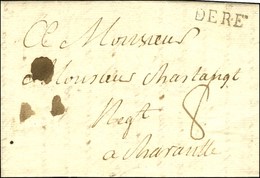 DERE
A Monsieur
Monsieur Chaslange
Negt
8
a Charante